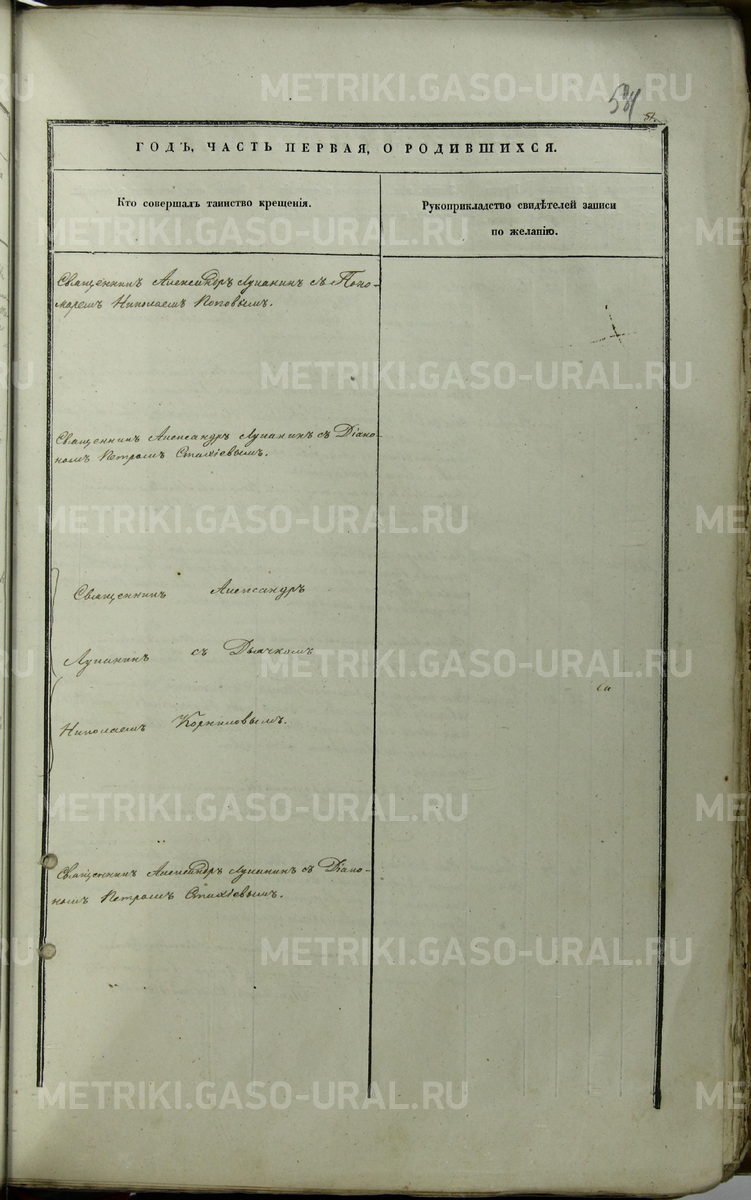 581
ГОДЪ, ЧАСТЬ ПЕРВАЯ, О РОДИВШИХСЯ.
Кто совершалъ таинство крещенія.
Рукоприкладство свидѣтелей записи
по желанію.
Священникъ Александръ Лупанинъ съ Поно-
маремъ Николаемъ Поповымъ.
Священникъ Александръ Лупанинъ съ Діако-
номъ Петромъ Стахіевымъ.
Священникъ Александръ
Лупанинъ съ Дьячкомъ
Николаемъ Корниловымъ.
Священникъ Александръ Лупанинъ съ Діако-
номъ Петромъ Стахіевымъ.
METRIKI.GASO-URAL.RU